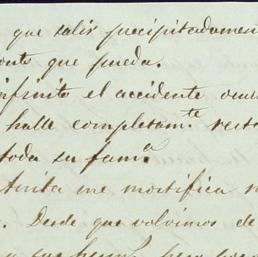 que salir precipitadamen
que pueda.
infinito el accidente ocur
halle completam.te resta
toda su fam.a
me mortifica m
Desde que volvimos de